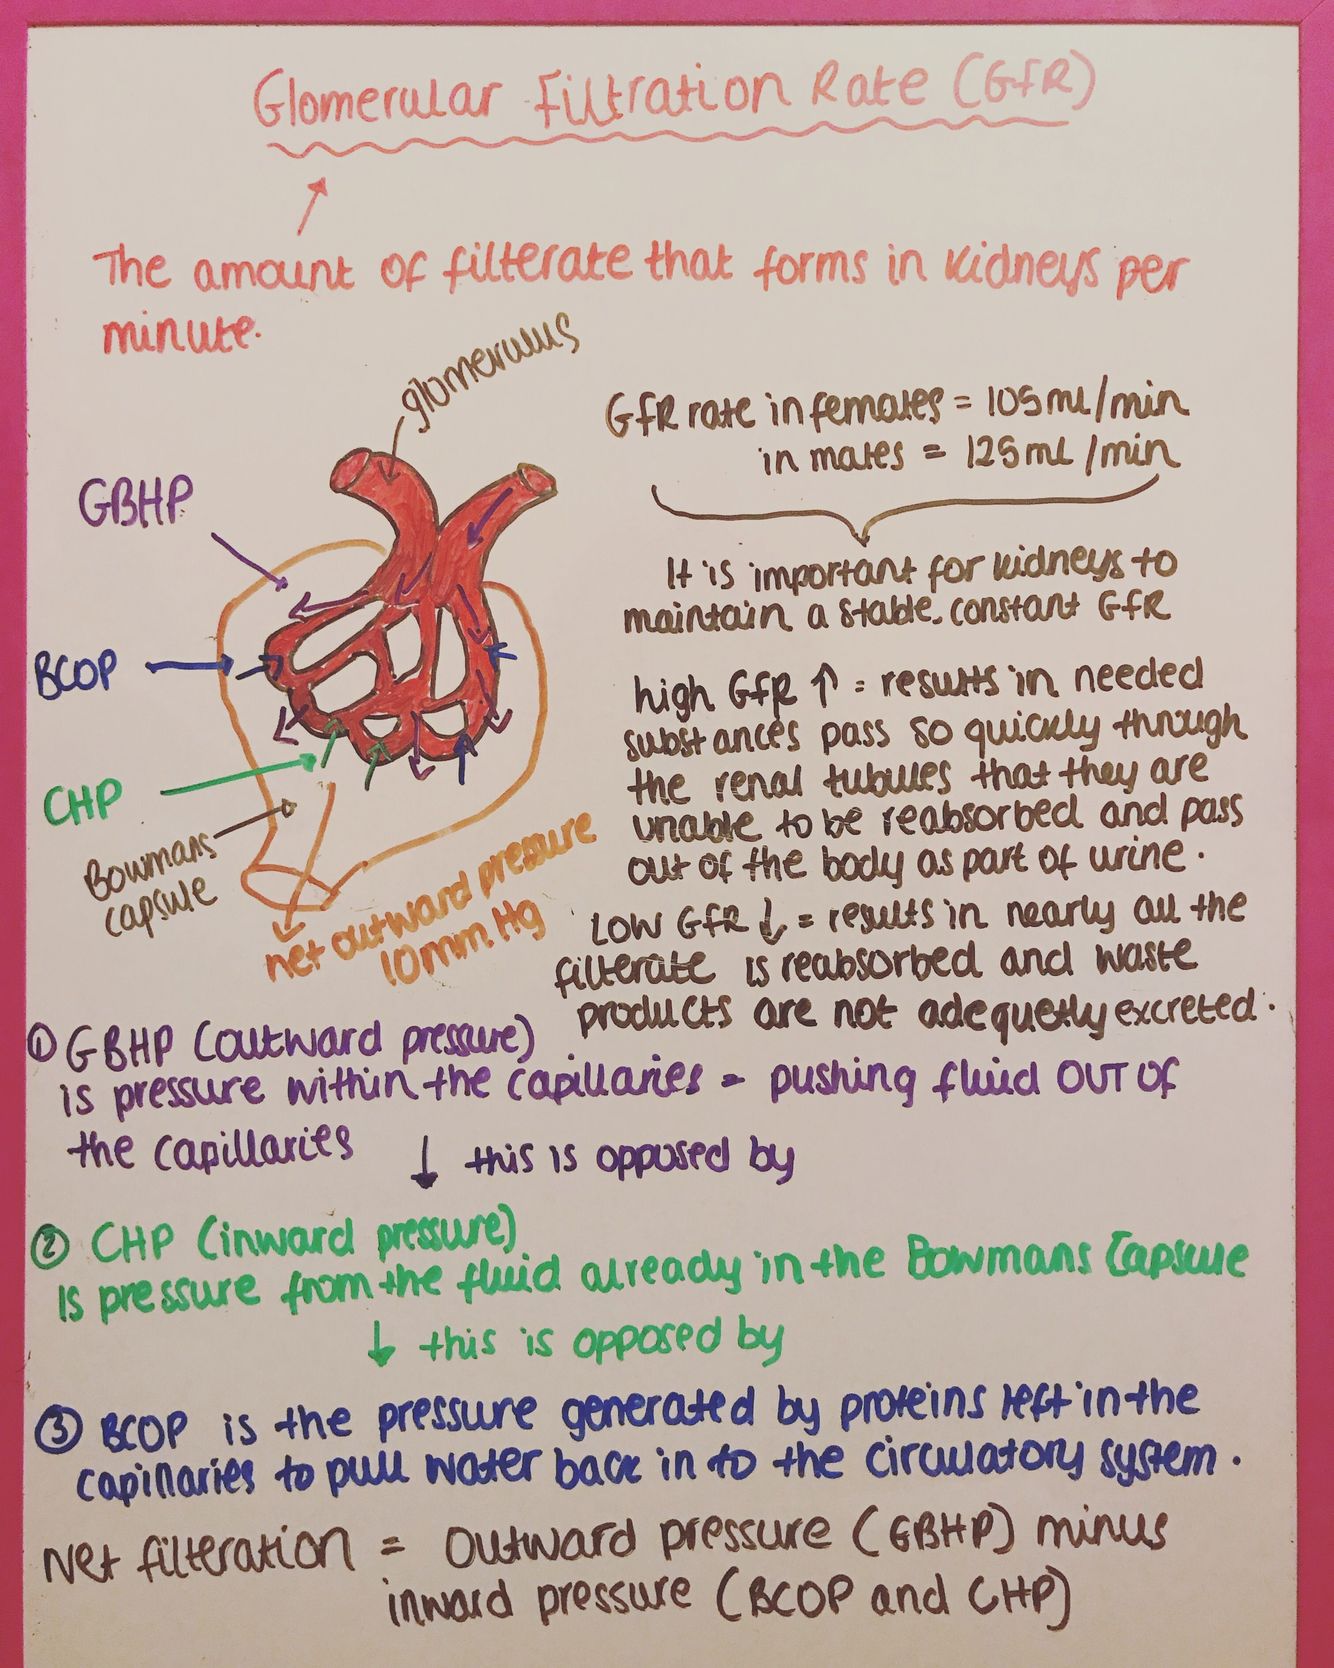 Glomerular Filtration Rate (GfR)
The amount of filterate that forms in kidneys per
minute.
glomerulus
GfR rate in females = 105ml/min
in males = 125ml/min
GBHP
It is important for kidneys to
maintain a stable, constant GfR
BCOP
high GfR ↑ = results in needed
substances pass so quickly through
the renal tubules that they are
unable to be reabsorbed and pass
out of the body as part of urine.
CHP
Bowmans
capsule
net outward pressure
10mm Hg
LOW GfR ↓ = results in nearly all the
filterate is reabsorbed and waste
products are not adequetly excreted.
① GBHP (outward pressure)
is pressure within the capillaries = pushing fluid OUT OF
the capillaries ↓ this is opposed by
② CHP (inward pressure)
is pressure from the fluid already in the Bowmans Capsule
↓ this is opposed by
③ BCOP is the pressure generated by proteins left in the
capillaries to pull water back in to the circulatory system.
Net filteration = outward pressure (GBHP) minus
inward pressure (BCOP and CHP)